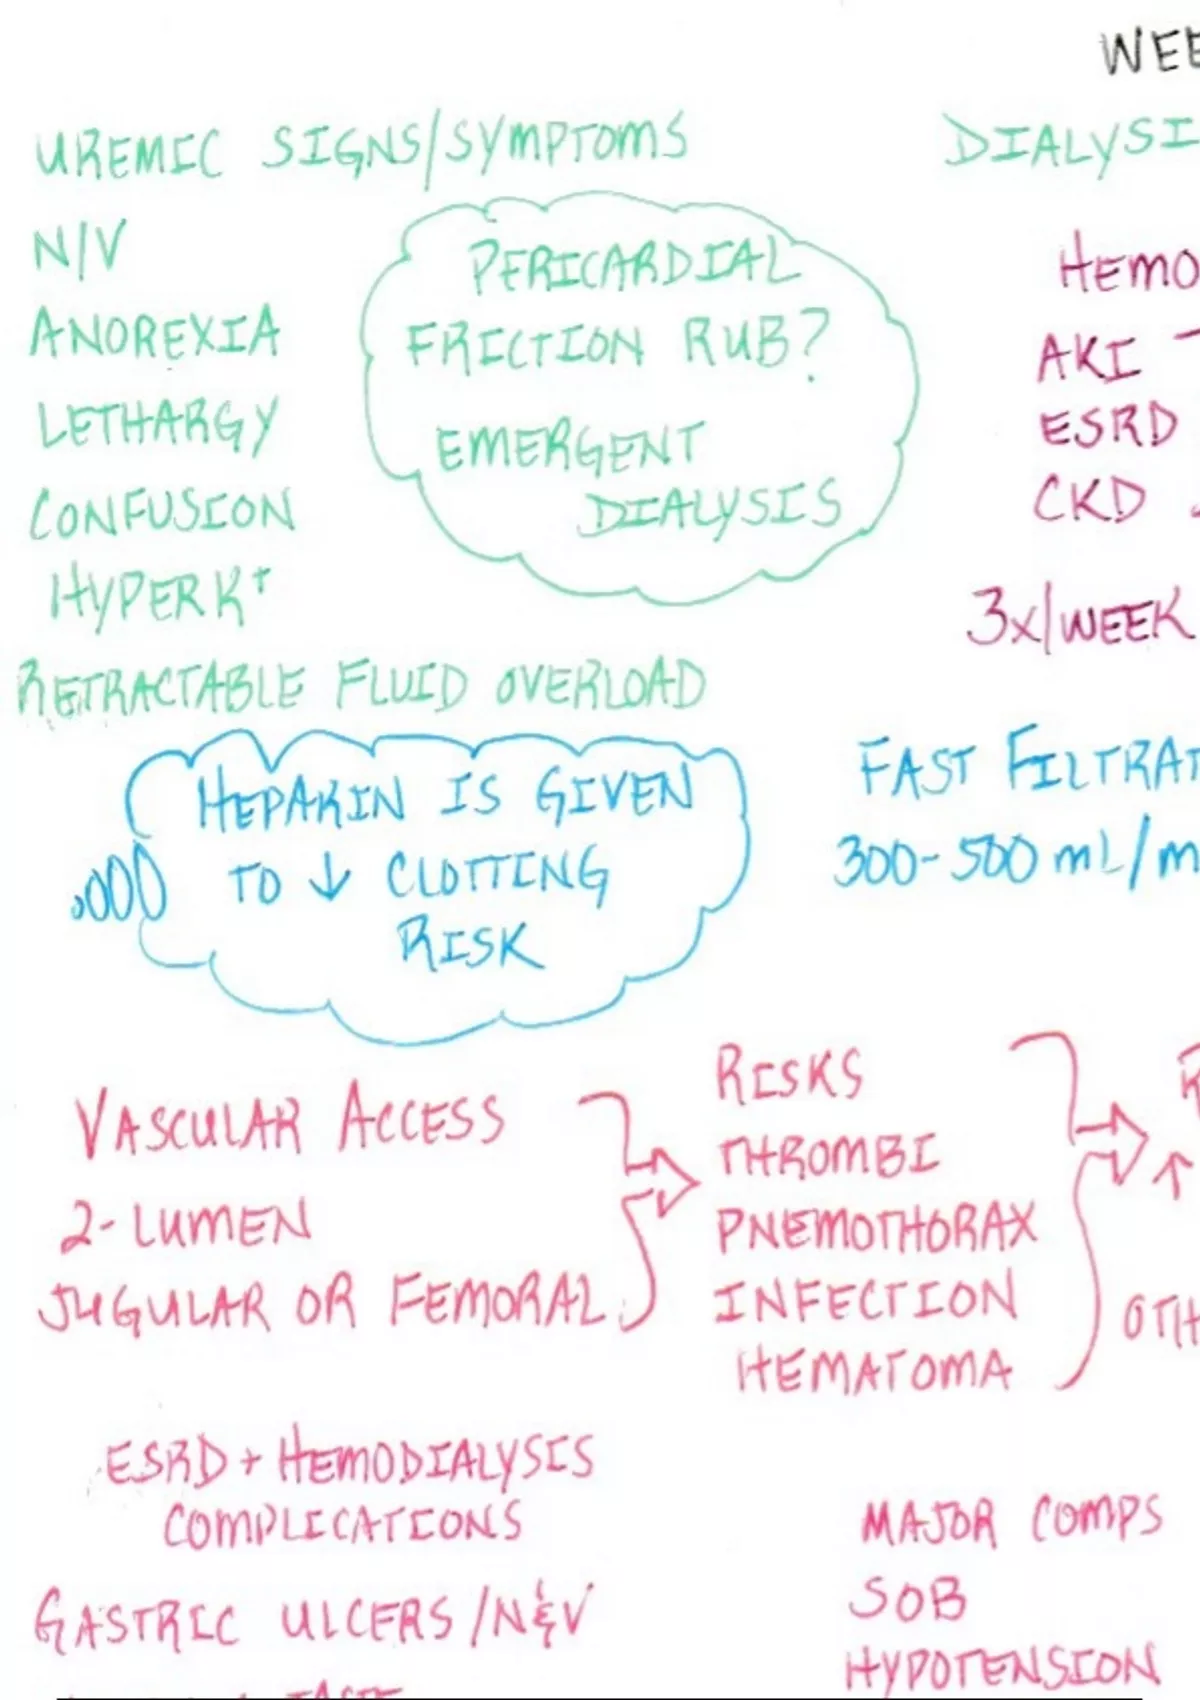 WEE
UREMIC SIGNS/SYMPTOMS
N/V
ANOREXIA
LETHARGY
CONFUSION
HYPERK+
RETRACTABLE FLUID OVERLOAD
PERICARDIAL
FRICTION RUB?
EMERGENT
DIALYSIS
DIALYSI
HEMO
AKI
ESRD
CKD
3x/WEEK
HEPARIN IS GIVEN
TO ↓ CLOTTING
RISK
FAST FILTRAT
300-500 mL/m
VASCULAR ACCESS
2-LUMEN
JUGULAR OR FEMORAL
RISKS
THROMBI
PNEMOTHORAX
INFECTION
HEMATOMA
↑
OTH
ESRD + HEMODIALYSIS
COMPLICATIONS
GASTRIC ULCERS/N&V
MAJOR COMPS
SOB
HYPOTENSION